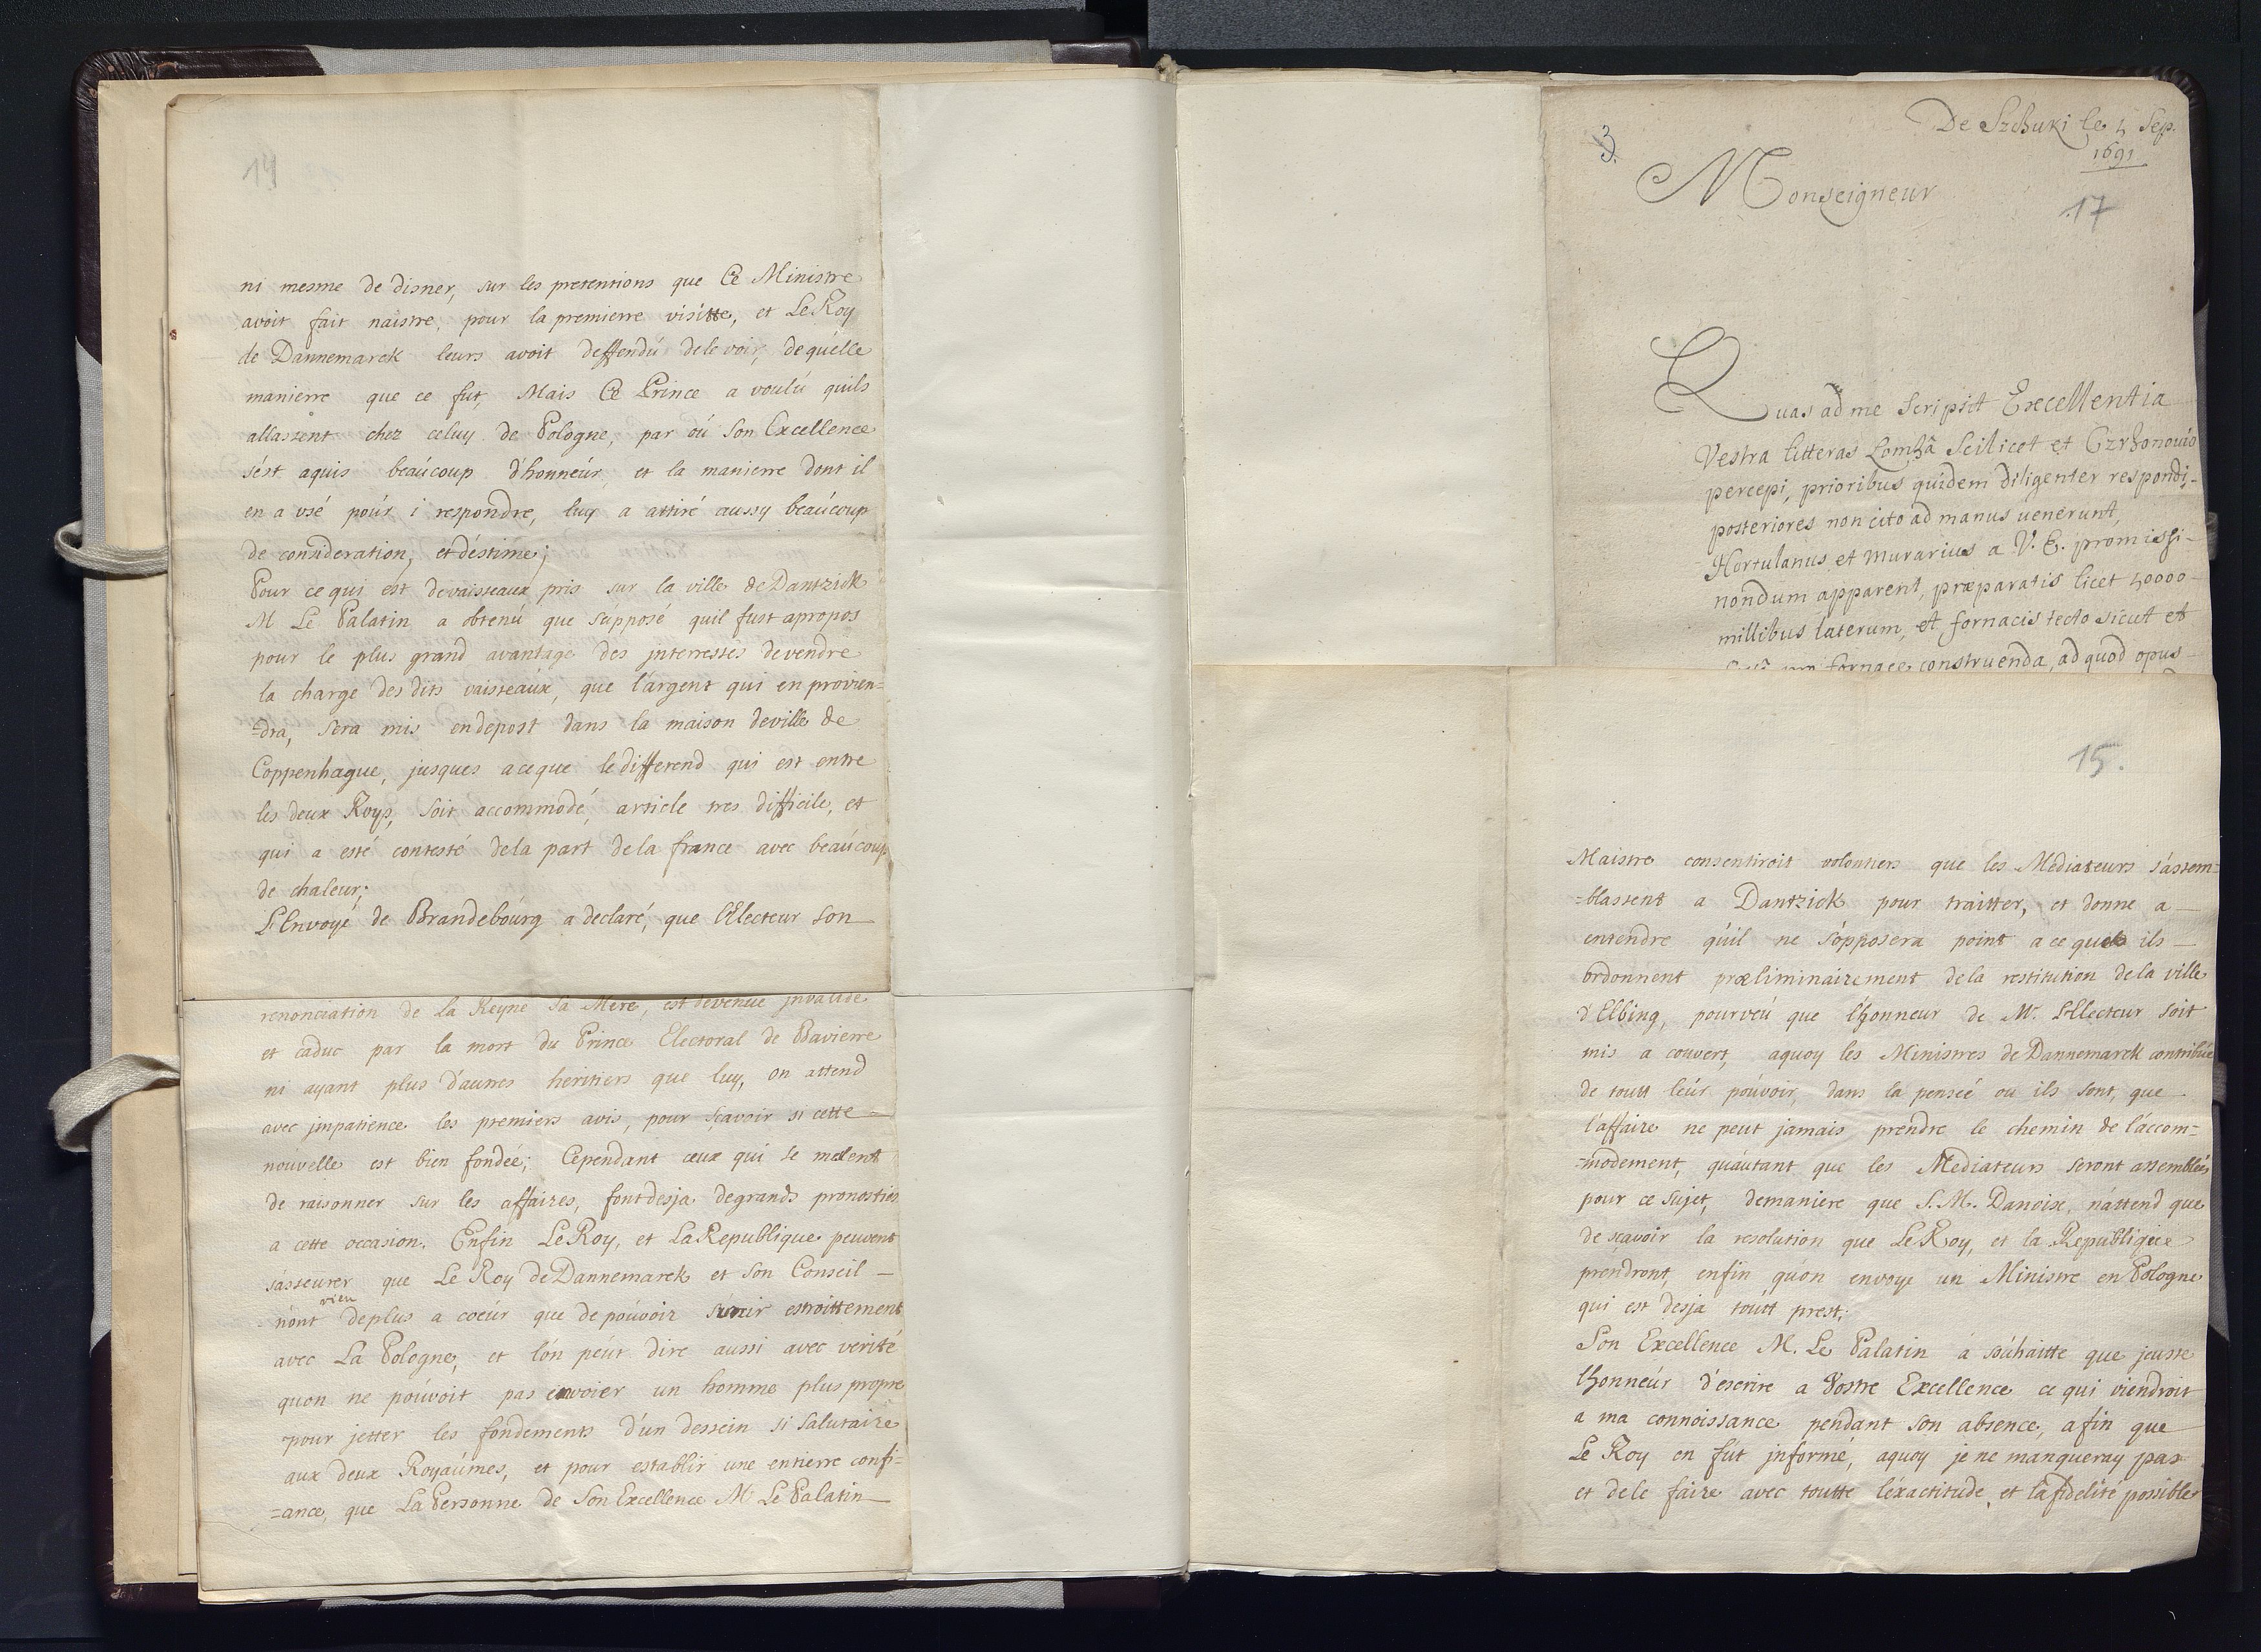 14
ni mesme de disner, sur les pretentions que Ce Ministre
avoit fait naistre, pour la premierre visitte, et Le Roy
de Dannemarck leurs avoit deffendú de le voir, de quelle
manierre que ce fut, Mais Ce Prince a voulú quils
allassent chez celuy de Pologne, par oú Son Excellence
s'ést aquis beaúcoup d'honneúr, et la manierre dont il
en a vsé poúr i respondre, luy a attiré aussy beaúcoup
de consideration, et déstime;
Pour ce qui est de vaisseaux pris sur la ville de Dantzick
M Le Palatin a obtenú que súpposé quil fust apropos
pour le plus grand avantage des jnterressés de vendre
la charge des dits vaisseaúx, que l'argent qui en provien=
=dra, sera mis en depost dans la maison de ville de
Coppenhague, jusques a ce que le differend qui est entre
les deux Roys, soit accommodé, article tres difficile, et
qui a esté contesté de la part de la france avec beaúcoup
de chaleur;
L'Envoyé de Brandeboúrg a declaré, que l'Electeur son
renonciation de la Reyne sa Mere, est devenue jnvalide
et caduc par la mort du Prince Electoral de Bavierre
ni ayant plus d'autres heritiers que luy, on attend
avec jmpatience les premiers avis, pour sçavoir si cette
noúvelle est bien fondeé; Cependant ceux qui se melent
de raisonner sur les affaires, font desja de grands pronostics
a cette occasion. Enfin Le Roy, et La Republique peuvent
s'asseurer que Le Roy de Dannemarck et son Conseil
n'ont rien de plus a coeúr que de poúvoir s'unir estroittement
avec La Pologne, et l'ón peút dire aussi avec verité
quon ne poúvoit pas envoier un homme plus propre
pour jetter les fondements d'un dessein si salutaire
aux deux Royaúmes, et pour establir une entierre confi=
=ance, que La Personne de Son Excellence M. Le Palatin
3.
De Szchuki le 4 Sep.
1691
Monseigneur
17
Quas ad me scripsit Excellentia
Vestra litteras Lomzâ scilicet et Czrhonouio
percepi, prioribus quidem diligenter respondi,
posteriores non cito ad manus uenerunt,
Hortulanus et murarius a V. E. promissi
nondum apparent, præparatis licet 40000
millibus laterum, et fornacis tecto sicut et
fornace construenda, ad quod opus
15.
Maistre consentiroit volontiers que les Mediateurs s'ássem=
=blassent a Dantzick pour traitter, et donne a
entendre qúil ne s'ópposera point a ce que ils
ordonnent præliminairement de la restitution de la ville
d'Elbing, pourveú que l'honneur de Mr. L'Electeur soit
mis a couvert, aquoy les Ministres de Dannemarck contribue
de toutt leúr poúvoir, dans la penseé ou ils sont, que
l'affaire ne peut jamais prendre le chemin de l'áccom=
=modement, quáutant que les Mediateurs seront assemblés
pour ce sujet, demaniere que S. M. Danoise, n'áttend que
de sçavoir la resolution que Le Roy, et la Republique
prendront, enfin qu'ón envoye un Ministre en Pologne
qui est desja toútt prest;
Son Excellence M. Le Palatin a soúhaitte que jeusse
l'honneúr d'escrire a Vostre Excellence ce qui viendroit
a ma connoissance pendant son absence, afin que
Le Roy en fút jnformé, aquoy je ne manqueray pas
et de le faire avec toutte l'éxactitude, et la fidelité possible